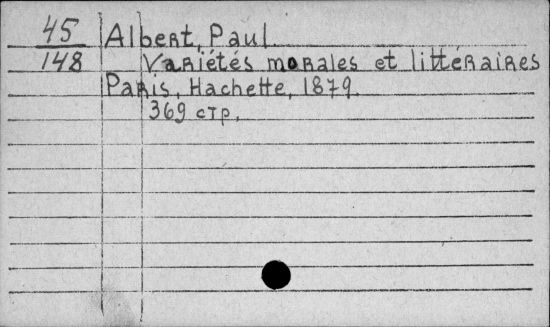 45 Albert, Paul.
148 Variétés morales et littéraires
Paris, Hachette, 1879.
369 стр.